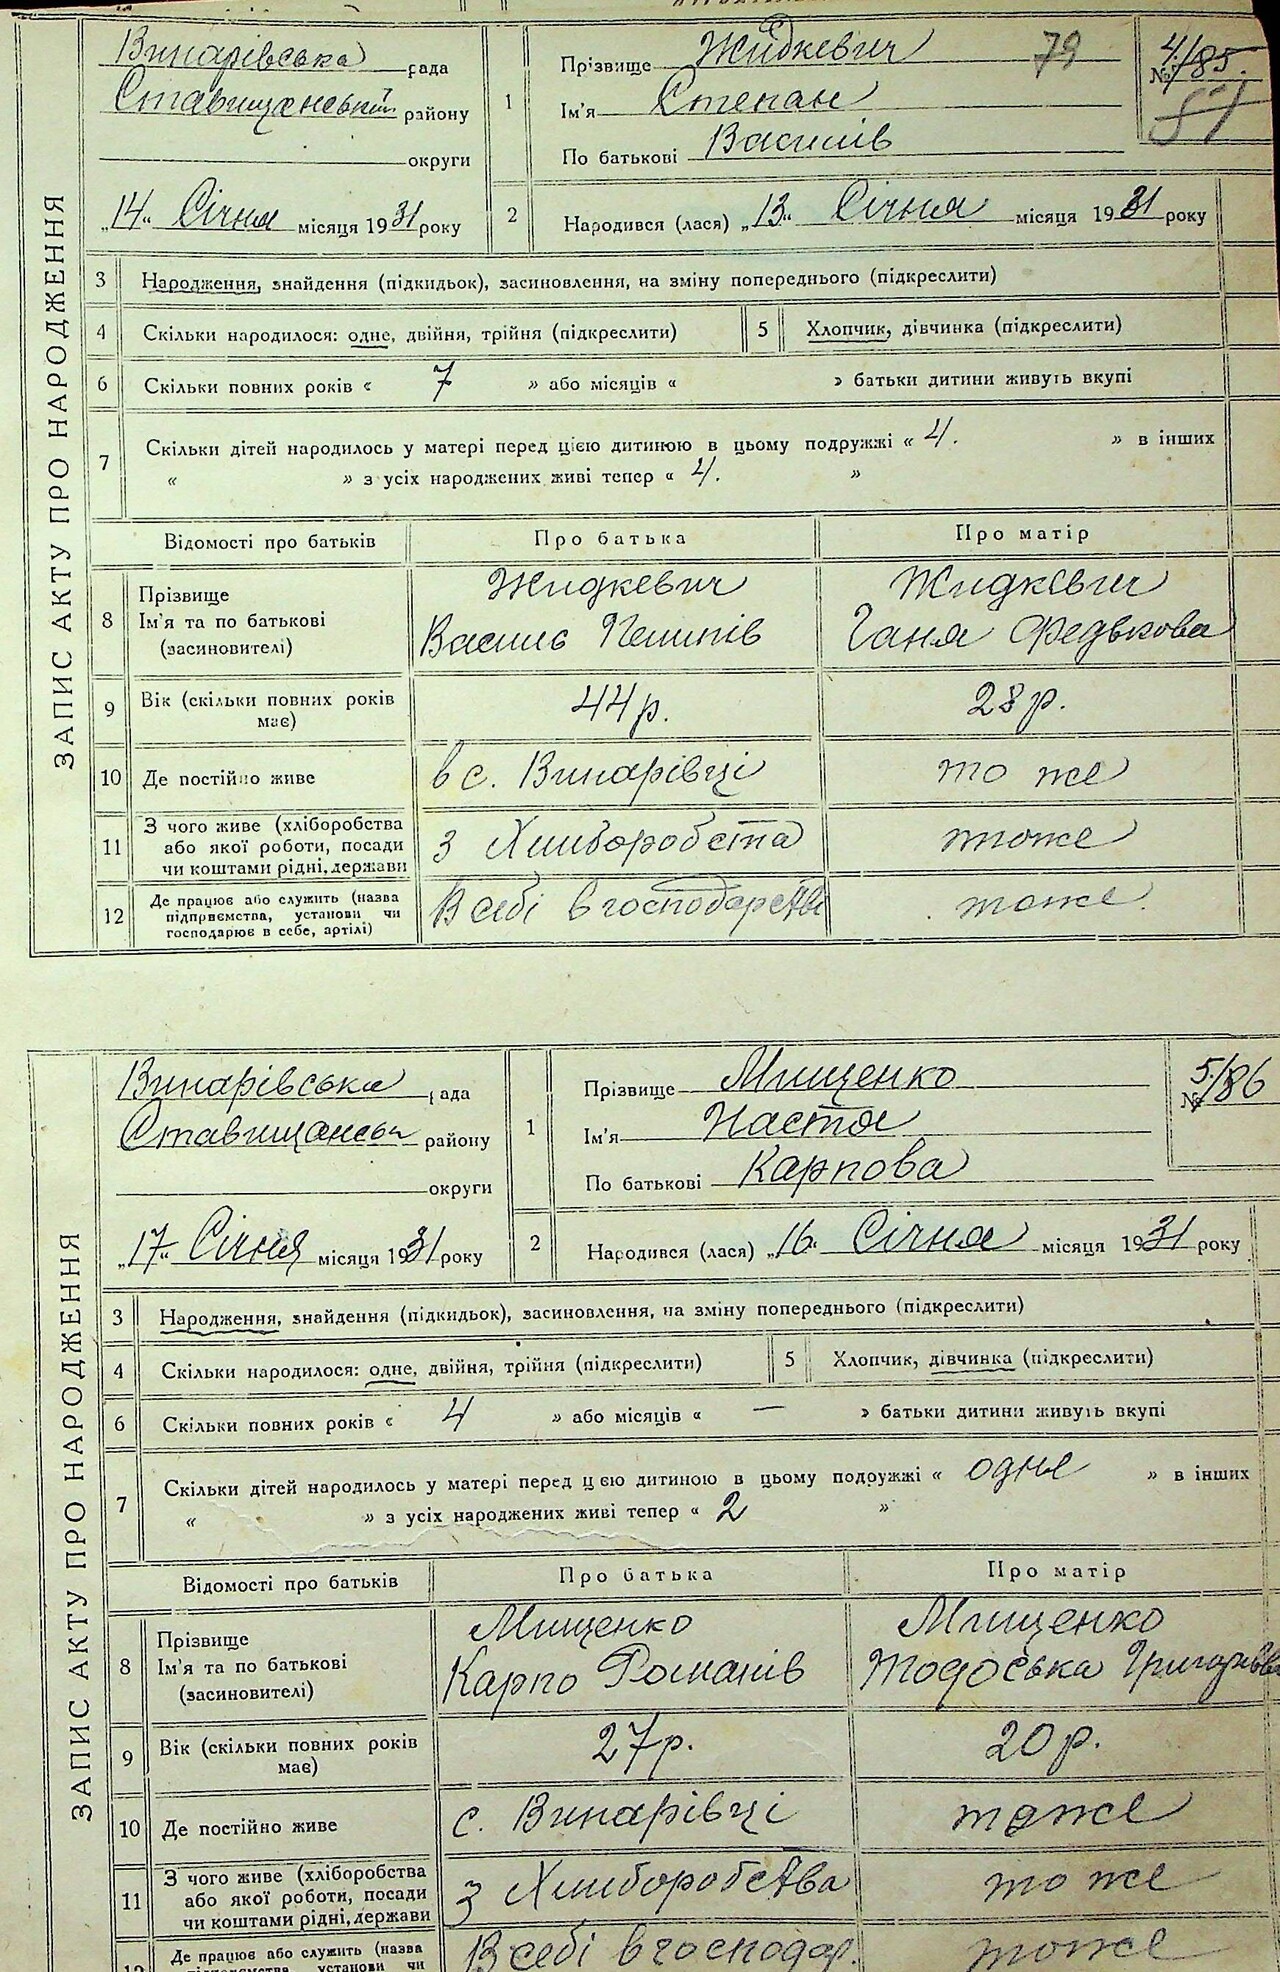 ЗАПИС АКТУ ПРО НАРОДЖЕННЯ
Винарівська рада
Ставищанський району
округи
„14“ Січня місяця 1931 року
1
Прізвище Жидкевич
Ім'я Степан
По батькові Василів
79
№ 4/85
2
Народився (лася) „13“ Січня місяця 1931 року
3 Народження, знайдення (підкидьок), засиновлення, на зміну попереднього (підкреслити)
4 Скільки народилося: одне, двійня, трійня (підкреслити)
5 Хлопчик, дівчинка (підкреслити)
6 Скільки повних років « 7 » або місяців « » батьки дитини живуть вкупі
7 Скільки дітей народилось у матері перед цією дитиною в цьому подружжі « 4. » в інших
« » з усіх народжених живі тепер « 4. »
Відомості про батьків Про батька Про матір
8 Прізвище
Ім'я та по батькові
(засиновителі)
Жидкевич
Василь Пилипів
Жидкевич
Ганя Федькова
9 Вік (скільки повних років має) 44 р. 28 р.
10 Де постійно живе в с. Винарівці то же
11 З чого живе (хліборобства
або якої роботи, посади
чи коштами рідні, держави
з Хлиборобста тоже
12 Де працює або служить (назва
підприємства, установи чи
господарює в себе, артілі)
В себі в господарстві тоже.
ЗАПИС АКТУ ПРО НАРОДЖЕННЯ
Винарівська рада
Ставищанськ району
округи
„17“ Січня місяця 1931 року
1
Прізвище Мищенко
Ім'я Настя
По батькові Карпова
№ 5/86
2
Народився (лася) „16“ Січня місяця 1931 року
3 Народження, знайдення (підкидьок), засиновлення, на зміну попереднього (підкреслити)
4 Скільки народилося: одне, двійня, трійня (підкреслити)
5 Хлопчик, дівчинка (підкреслити)
6 Скільки повних років « 4 » або місяців « — » батьки дитини живуть вкупі
7 Скільки дітей народилось у матері перед цією дитиною в цьому подружжі « одне » в інших
« » з усіх народжених живі тепер « 2 »
Відомості про батьків Про батька Про матір
8 Прізвище
Ім'я та по батькові
(засиновителі)
Мищенко
Карпо Романів
Мищенко
Тодоська Григорівва
9 Вік (скільки повних років має) 27 р. 20 р.
10 Де постійно живе с. Винарівці тоже
11 З чого живе (хліборобства
або якої роботи, посади
чи коштами рідні, держави
з Хлиборобства то же
12 Де працює або служить (назва
підприємства, установи чи
В себі в господар. тоже